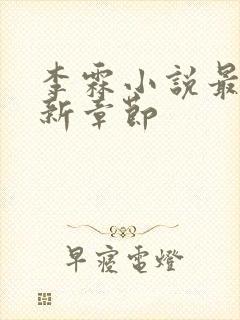 李霖小說最
新章節
早寢電燈